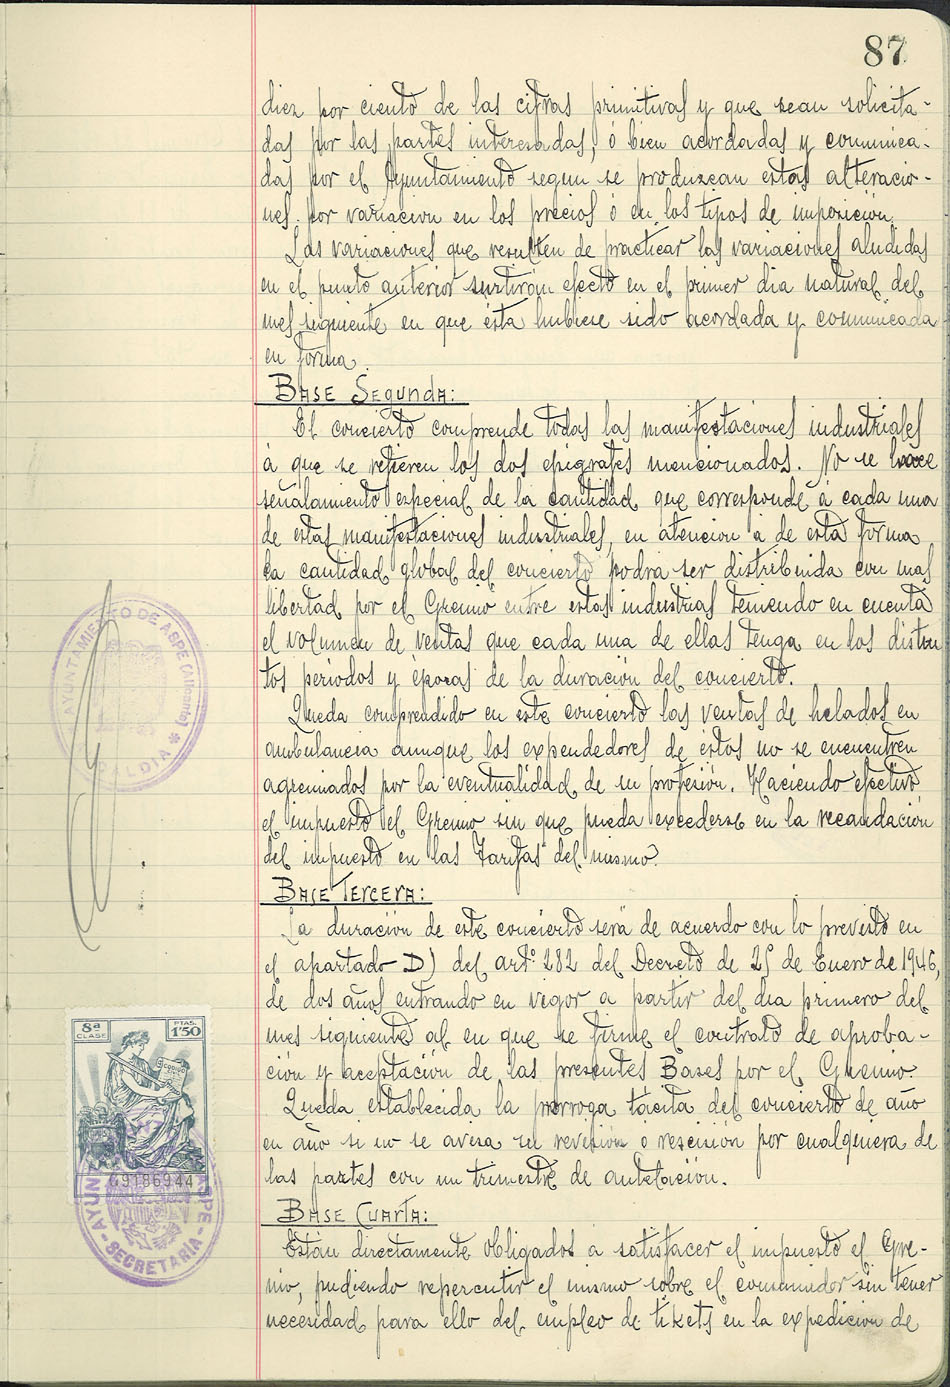 87
diez por ciento de las cifras primitivas y que sean solicita-
das por las partes interesadas, ó bien acordadas y comunica-
das por el Ayuntamiento segun se produzcan estas alteracio-
nes. por variación en los precios ó en los tipos de imposición.
Las variaciones que resulten de practicar las variaciones aludidas
en el punto anterior surtirán efecto en el primer dia natural del
mes siguiente en que ésta hubiese sido acordada y comunicada
en forma.
BASE SEGUNDA:
El concierto comprende todas las manifestaciones industriales
á que se refieren los dos epigrafes mencionados. No se hace
señalamiento especial de la cantidad que corresponde á cada una
de estas manifestaciones industriales, en atención á de esta forma
la cantidad global del concierto podrá ser distribuida con mas
libertad por el Gremio entre estas industrias teniendo en cuenta
el volumen de ventas que cada una de ellas tenga en los distin
tos periodos y épocas de la duración del concierto.
Queda comprendido en este concierto las ventas de helados en
ambulancia aunque los expendedores de éstos no se encuentren
agremiados por la eventualidad de su profesión. Haciendo efectivo
el impuesto el Gremio sin que pueda excederse en la recaudación
del impuesto en las Tarifas del mismo.
BASE TERCERA:
La duración de este concierto será de acuerdo con lo previsto en
el apartado D) del artº. 282 del Decreto de 25 de Enero de 1946,
de dos años entrando en vigor a partir del dia primero del
mes siguiente al en que se firme el contrato de aproba-
ción y aceptación de las presentes Bases por el Gremio
Queda establecida la prorroga tácita del concierto de año
en año si no se avisa su revisión o rescisión por cualquiera de
las partes con un trimestre de antelación.
BASE CUARTA:
Están directamente obligados a satisfacer el impuesto el Gre-
mio, pudiendo repercutir el mismo sobre el consumidor sin tener
necesidad para ello del empleo de tikets en la expedición de
AYUNTAMIENTO DE ASPE (Alicante)
ALCALDIA
8ª CLASE
PTAS. 1'50
69186944
AYUN
ASPE
SECRETARIA